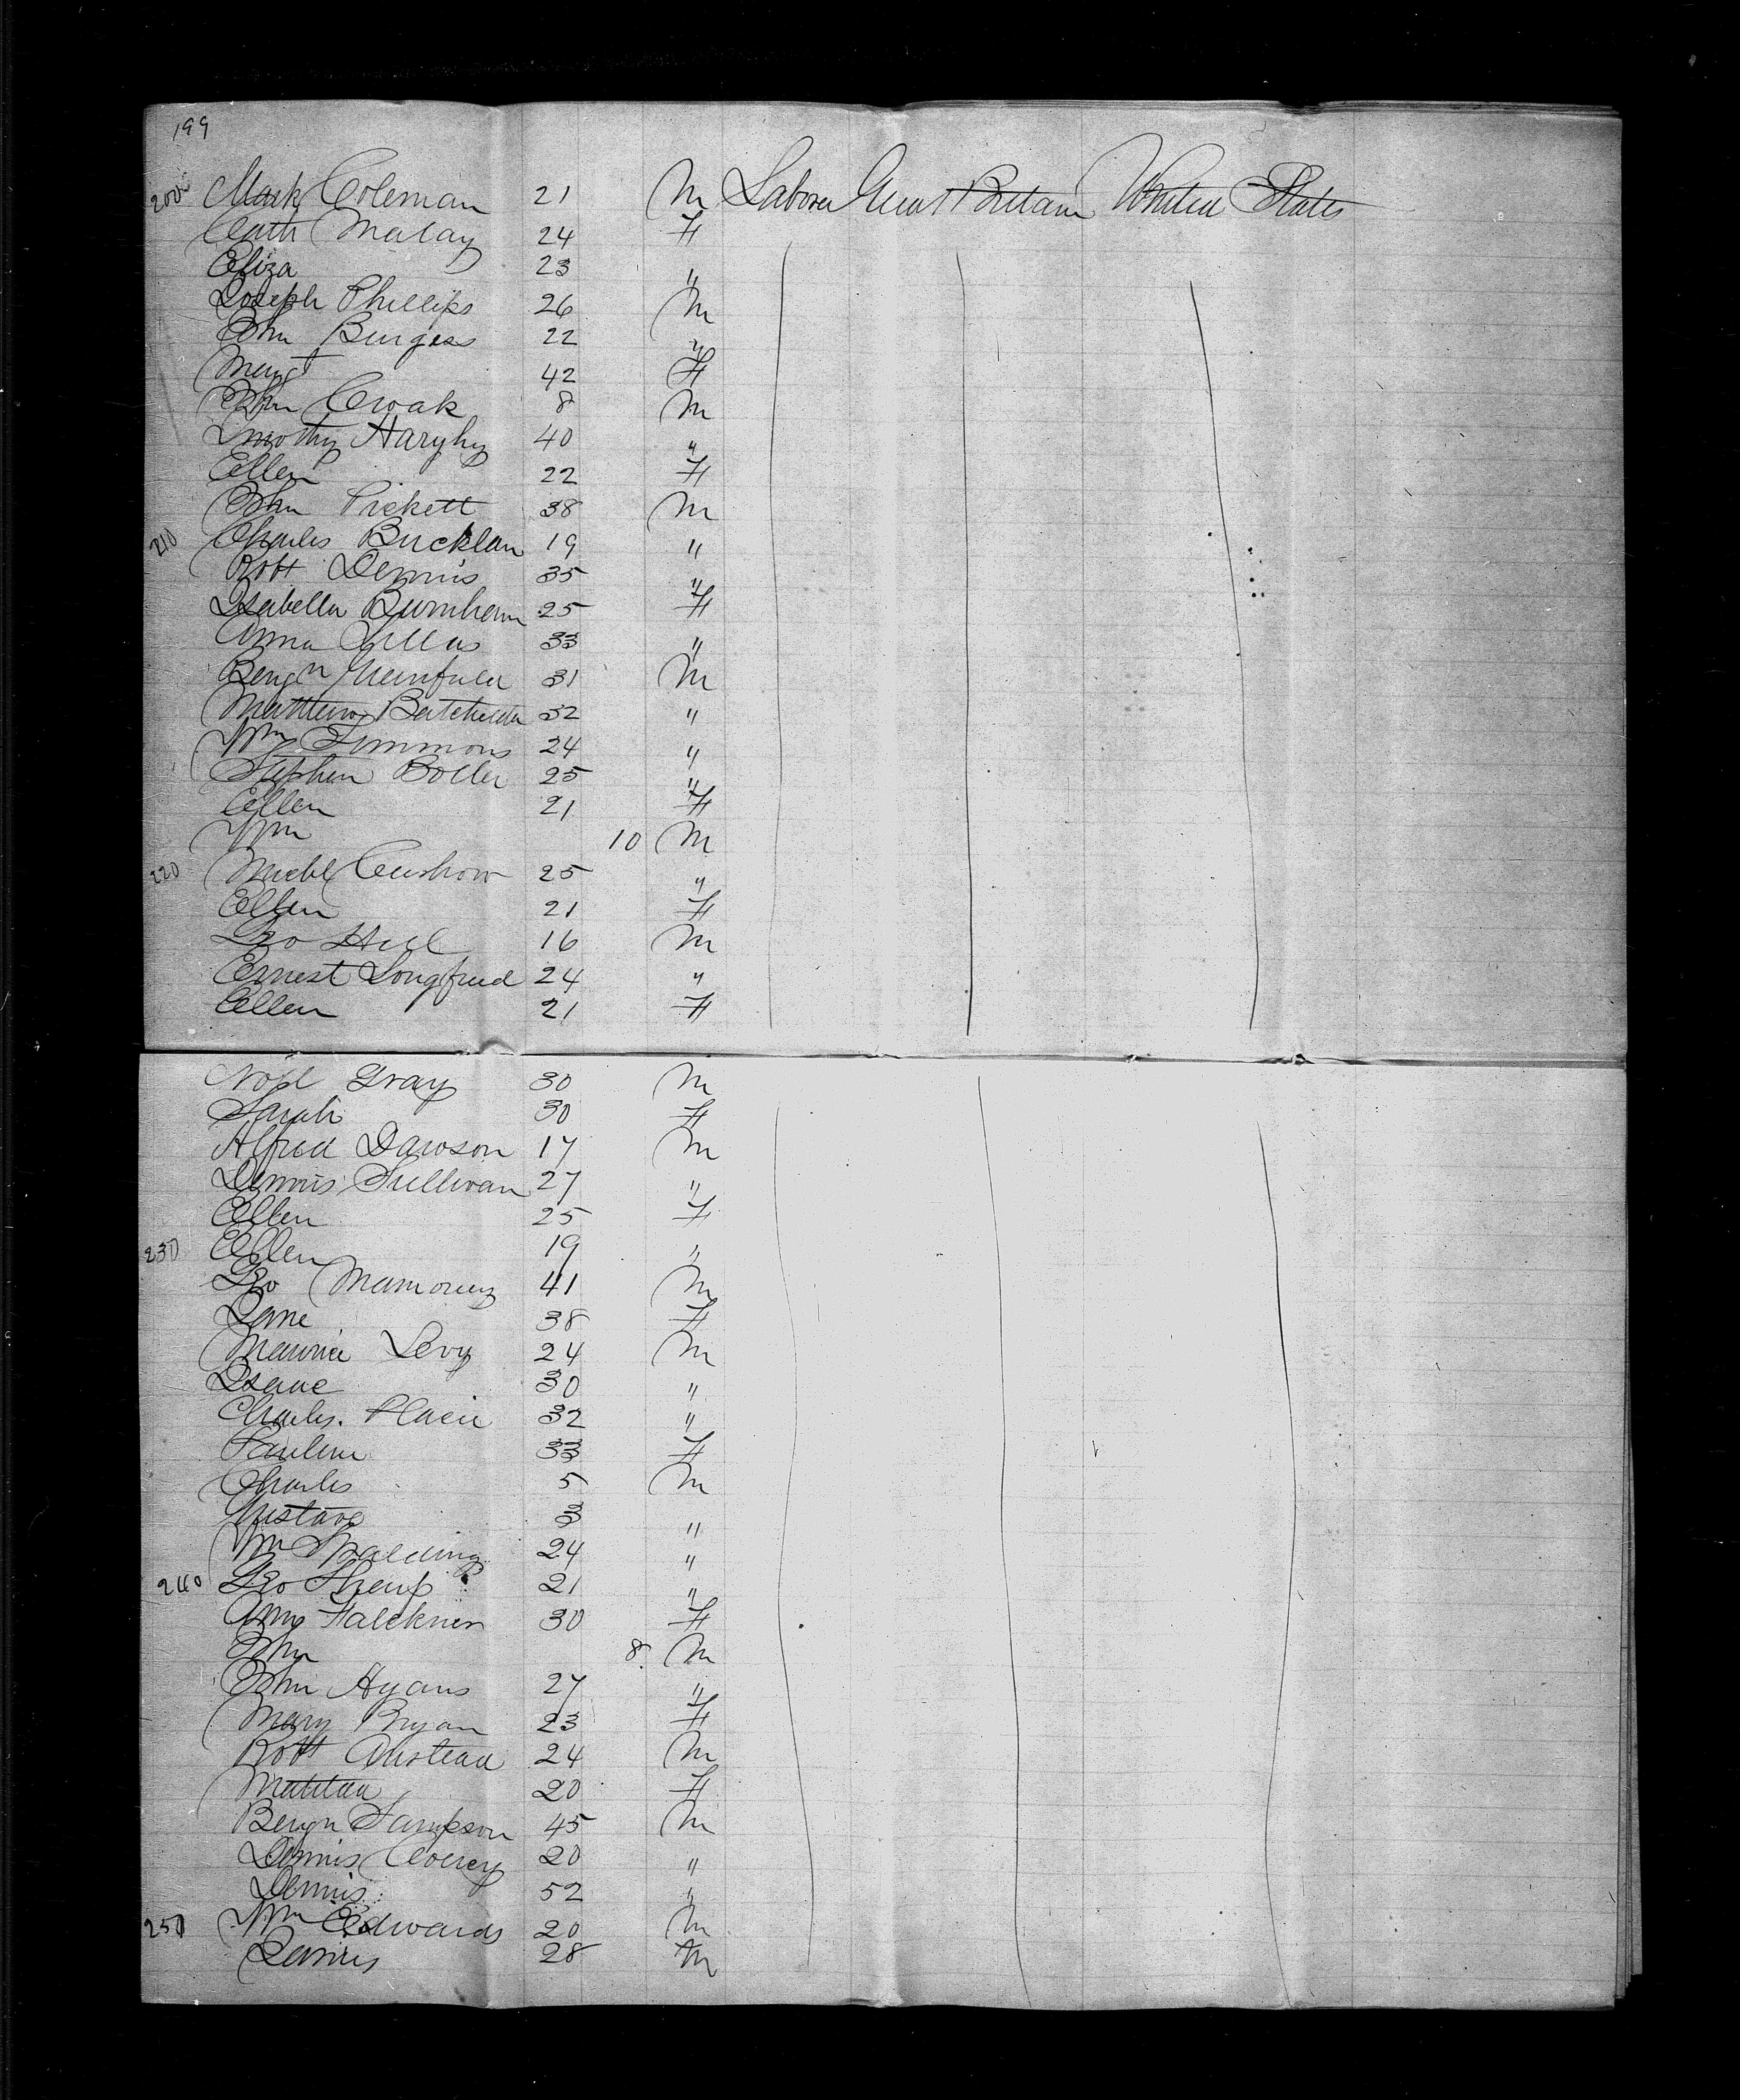 199
200 Mark Coleman 21 M Labore Great Brittain United States
Cath Malay 24 F
Eliza 23 "
Joseph Phillips 26 M
John Burgess 22 "
Margt 42 F
John Croak 8 M
Timothy Haryhy 40 "
Ellen 22 F
John Pickett 38 M
210 Charles Bucklan 19 "
Robt Dennis 35 "
Isabella Burnham 25 F
Anna 33 "
Benjn 31 M
Matthew Batchelda 32 "
Wm Timmons 24 "
Stephen Boller 25 "
Ellen 21 F
Wm 10 M
220 Michl 25 "
Ellen 21 F
Geo Hill 16 M
Ernest 24 "
Ellen 21 F
Noel Gray 30 M
Sarah 30 F
Alfred Dawson 17 M
Dennis Sullivan 27 "
Ellen 25 F
230 Ellen 19 "
Geo 41 M
Jane 38 F
Maurice Levy 24 M
Isaac 30 "
Charles 32 "
Pauline 33 F
Charles 5 M
Gustave 3 "
Wm Spalding 24 "
240 Geo Sharp 21 "
Amy Falckner 30 F
John 8 M
John Hyans 27 "
Mary Ryan 23 F
Robt Ansteau 24 M
Matilda 20 F
Benjn Sampson 45 M
Dennis 20 "
Dennis 52 "
250 Wm Edwards 20 M
James 28 M